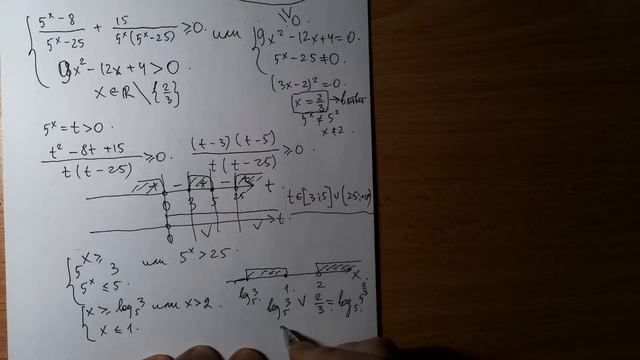 (5^x - 8)/(5^x - 25) + 15/(5^x(5^x - 25)) ≥ 0 или
9x² - 12x + 4 > 0.
x ∈ ℝ \ {2/3}
V0
9x² - 12x + 4 = 0.
5^x - 25 ≠ 0.
(3x - 2)² = 0.
x = 2/3 →
5^x ≠ 5²
x ≠ 2.
5^x = t > 0.
(t² - 8t + 15)/(t(t - 25)) ≥ 0. (t - 3)(t - 5)/(t(t - 25)) ≥ 0.
+ - + - + t.
0 3 5 25
t ∈ [3;5] ∪ (25;+∞)
0 V V t.
5^x ≥ 3 или 5^x > 25.
5^x ≤ 5.
x ≥ log₅3 или x > 2.
x ≤ 1.
log₅3 1. 2 x.
log₅3 V 2/3 = log₅5^(2/3)